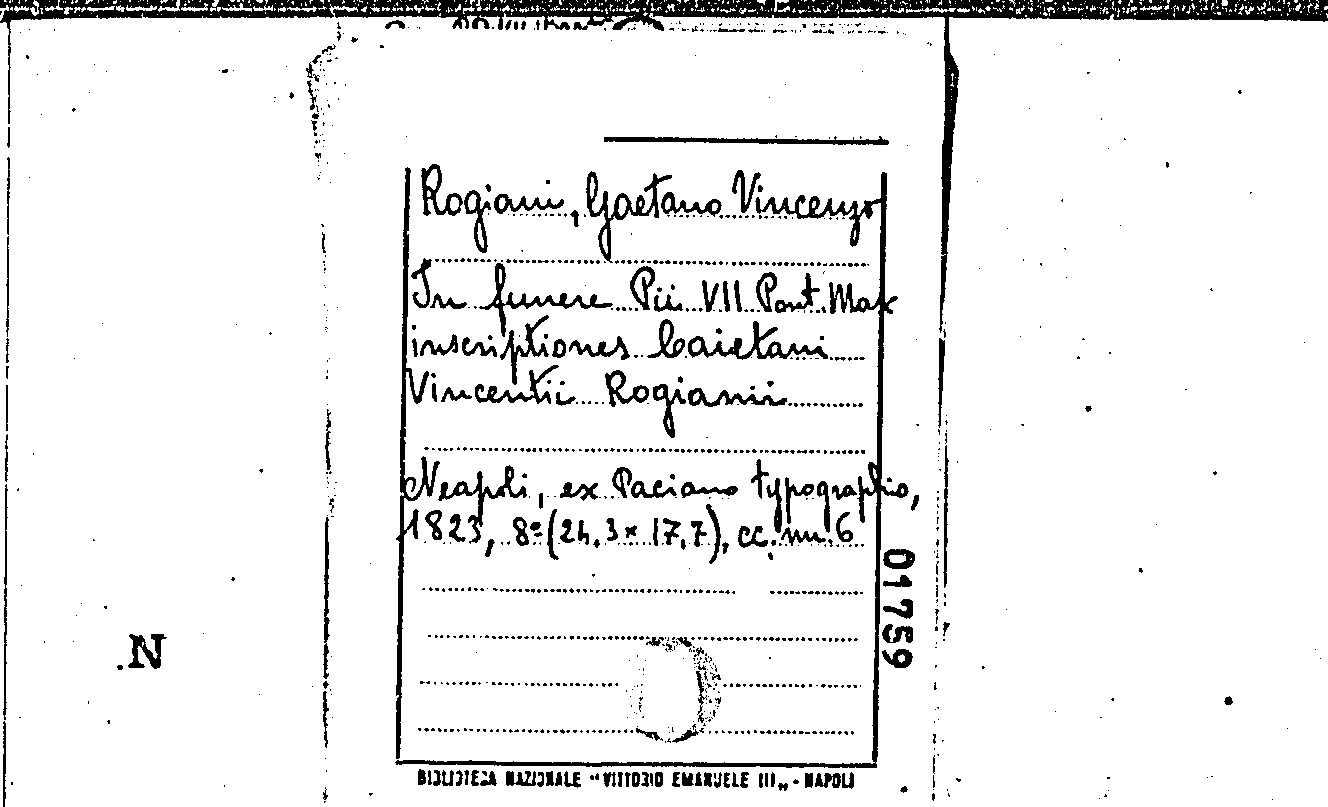 Rogiani, Gaetano Vincenzo
In funere Pii VII Pont. Max
inscriptiones Caietani
Vincentii Rogianii
Neapoli, ex Paciano typographio,
1823, 8º (24,3 x 17,7), cc. nn. 6
01759
N.
BIBLIOTECA NAZIONALE "VITTORIO EMANUELE III" - NAPOLI